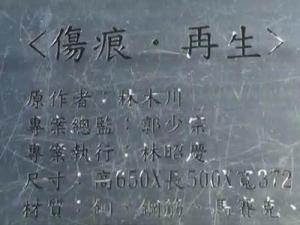 <傷痕·再生>
原作者：林木川
專案總監：郭少宗
專案執行：林昭慶
尺寸：高650X長500X寬372
材質：銅、鋼筋、馬賽克